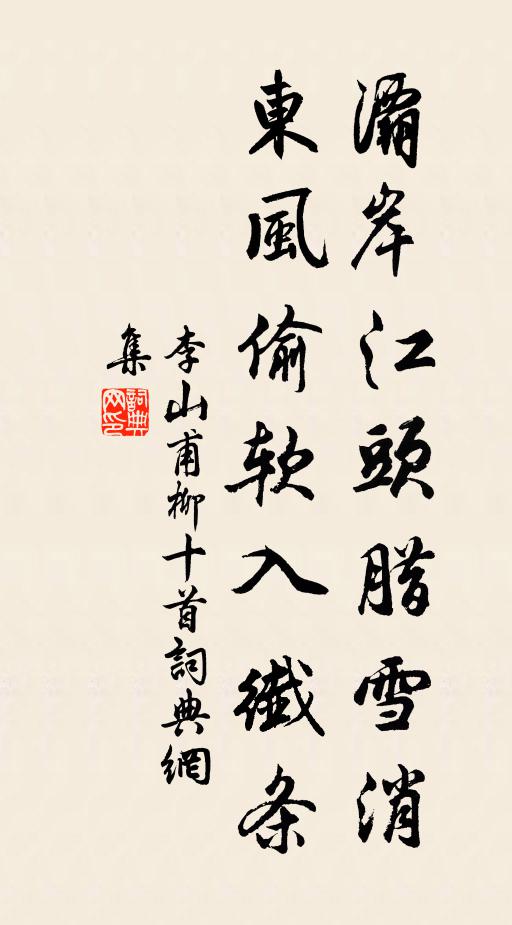 灞岸江頭腊雪消
東風偷軟入纖条
李山甫柳十首詞典網
集
詞典网印